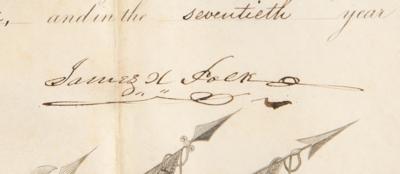 and in the seventieth year
James K Polk